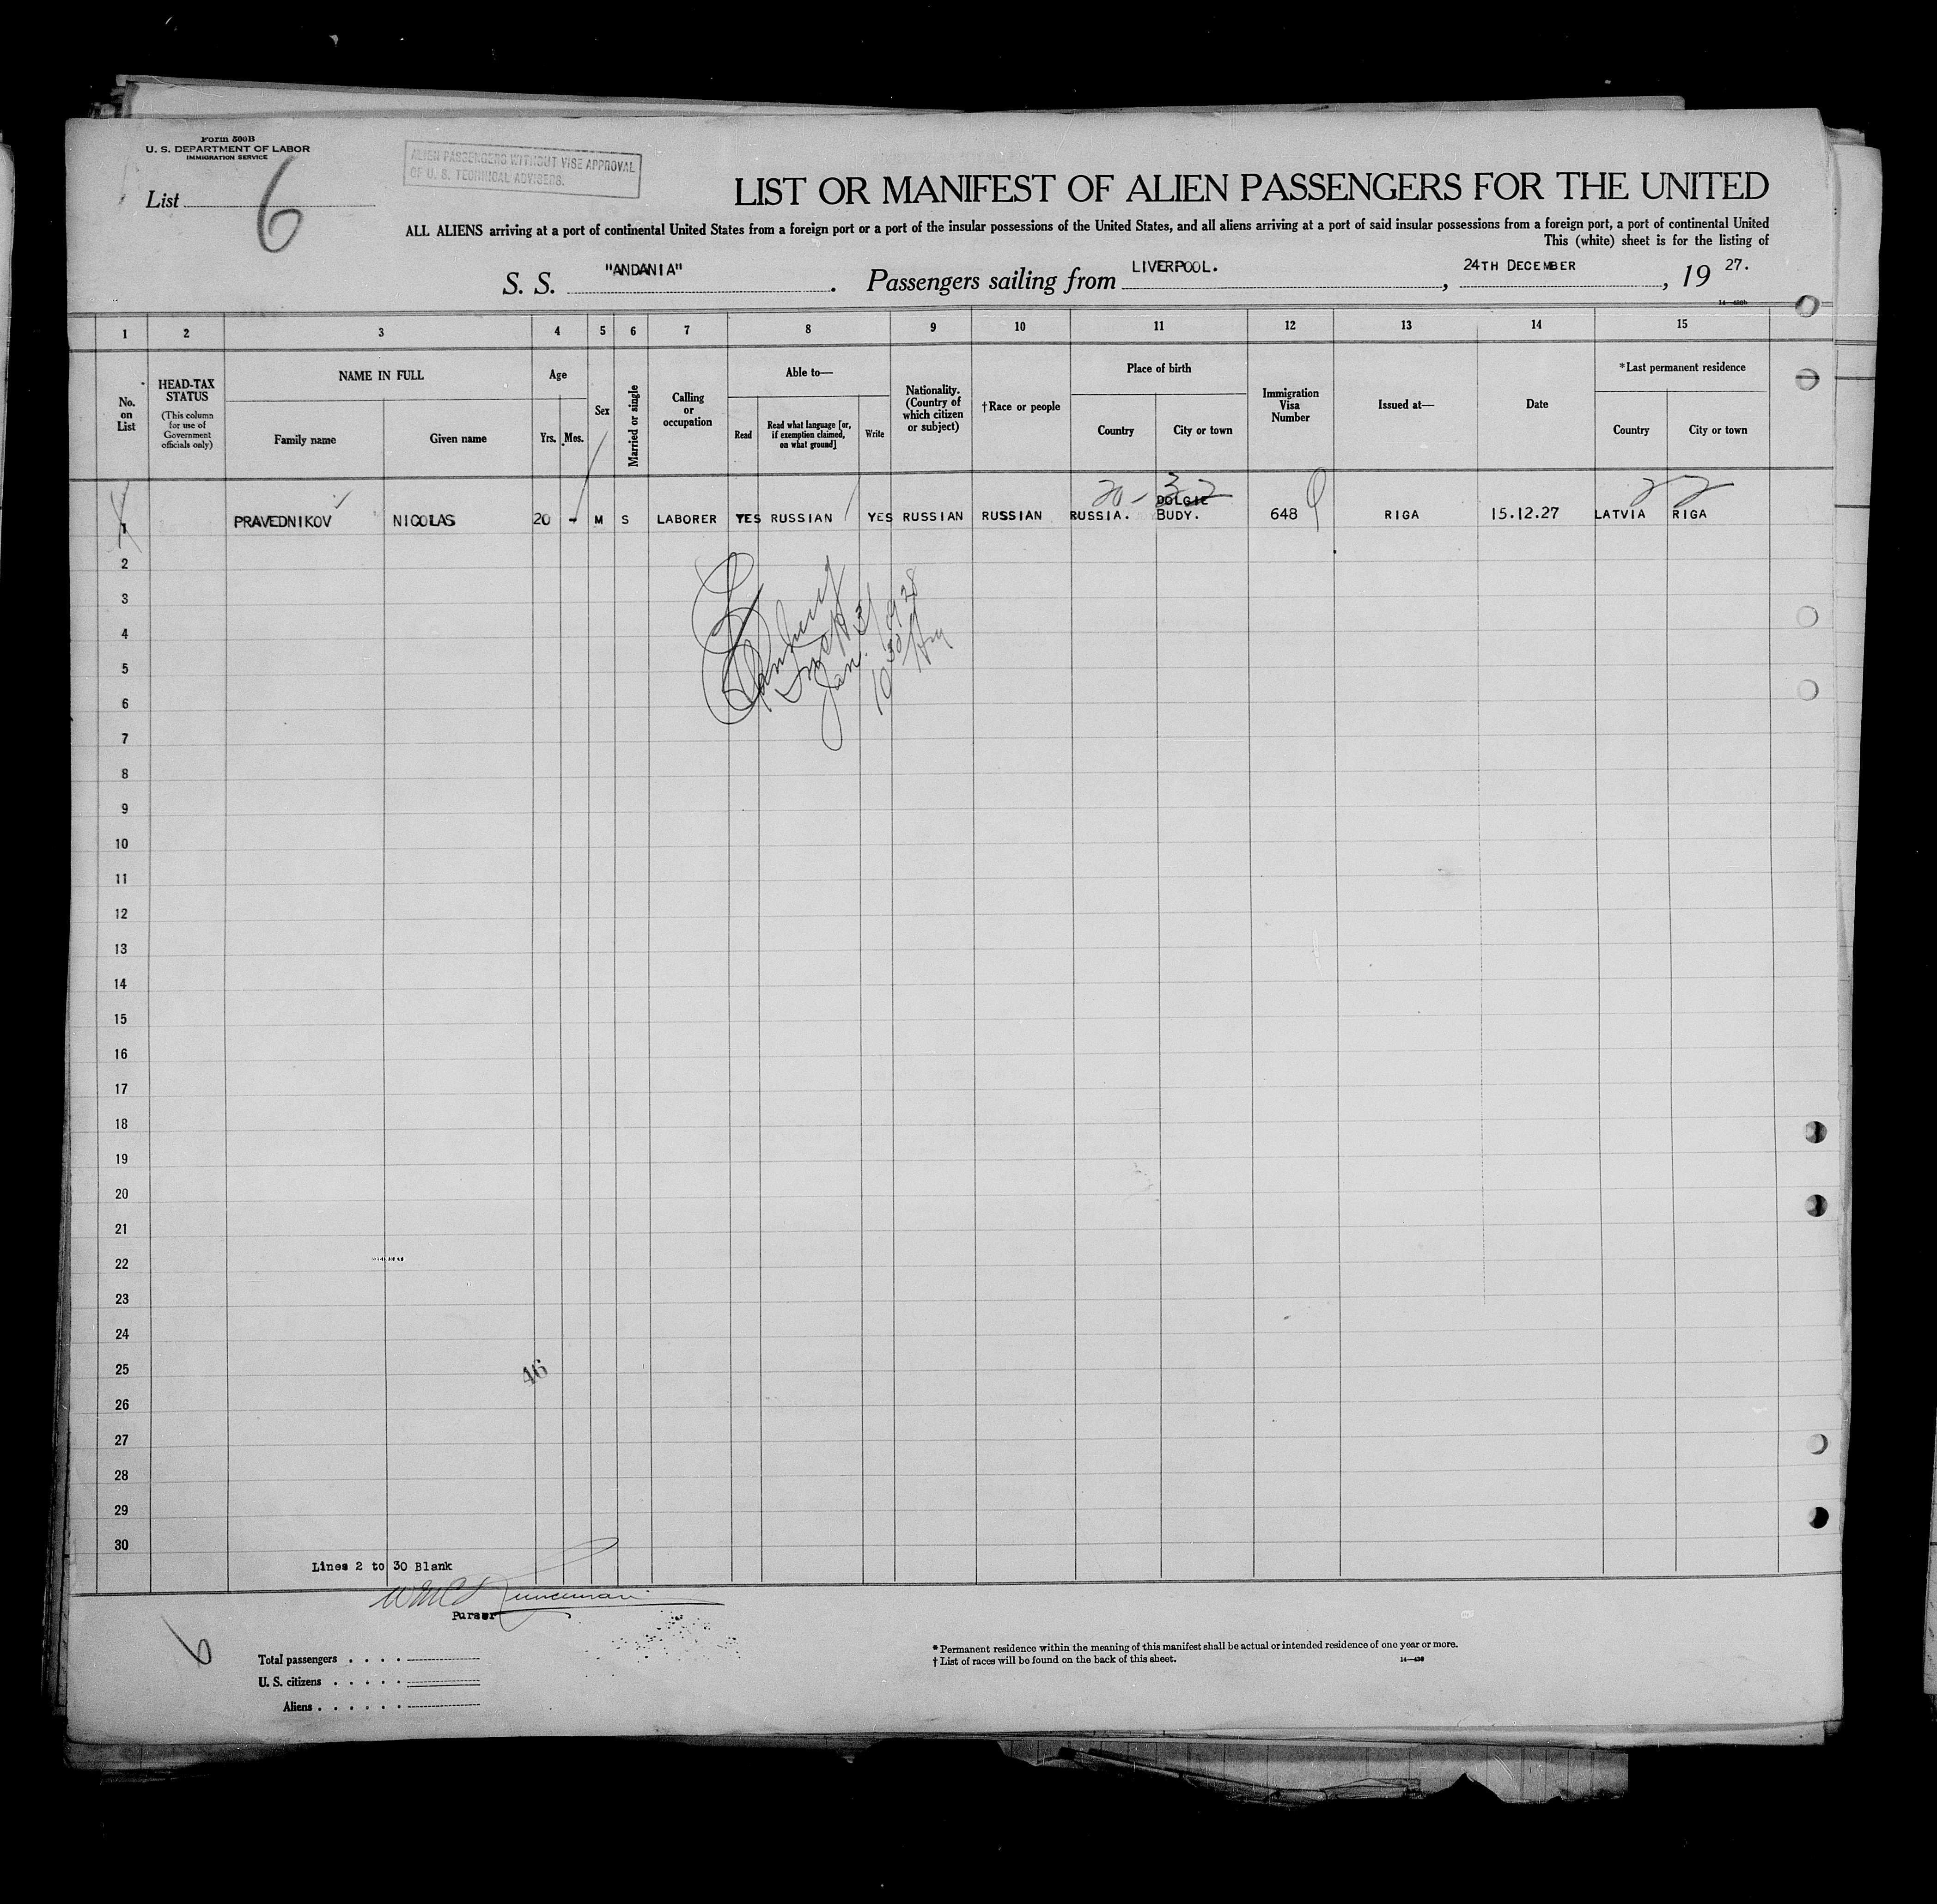 Form 500B
U. S. DEPARTMENT OF LABOR
IMMIGRATION SERVICE
ALIEN PASSENGERS WITHOUT VISE APPROVAL
OF U. S. TECHNICAL ADVISERS.
List 6
LIST OR MANIFEST OF ALIEN PASSENGERS FOR THE UNITED
ALL ALIENS arriving at a port of continental United States from a foreign port or a port of the insular possessions of the United States, and all aliens arriving at a port of said insular possessions from a foreign port, a port of continental United
This (white) sheet is for the listing of
S. S. "ANDANIA". Passengers sailing from LIVERPOOL., 24TH DECEMBER, 19 27.
1 2 3 4 5 6 7 8 9 10 11 12 13 14 15
No. on List
HEAD-TAX STATUS
(This column for use of Government officials only)
NAME IN FULL
Family name Given name
Age
Yrs. Mos.
Sex
Married or single
Calling or occupation
Able to—
Read Read what language [or, if exemption claimed, on what ground] Write
Nationality. (Country of which citizen or subject)
†Race or people
Place of birth
Country City or town
Immigration Visa Number
Issued at—
Date
*Last permanent residence
Country City or town
20 - 32 22
DOLGIE
1 PRAVEDNIKOV NICOLAS 20 - M S LABORER YES RUSSIAN YES RUSSIAN RUSSIAN RUSSIA. BUDY. 648 RIGA 15.12.27 LATVIA RIGA
2
3
4
5
6
7
8
9
10
11
12
13
14
15
16
17
18
19
20
21
22
23
24
25
26
27
28
29
30
Jan. 3/1928
10 30 AM
46
Lines 2 to 30 Blank
Purser
6
Total passengers . . . .
U. S. citizens . . . . .
Aliens . . . . . .
* Permanent residence within the meaning of this manifest shall be actual or intended residence of one year or more.
† List of races will be found on the back of this sheet.